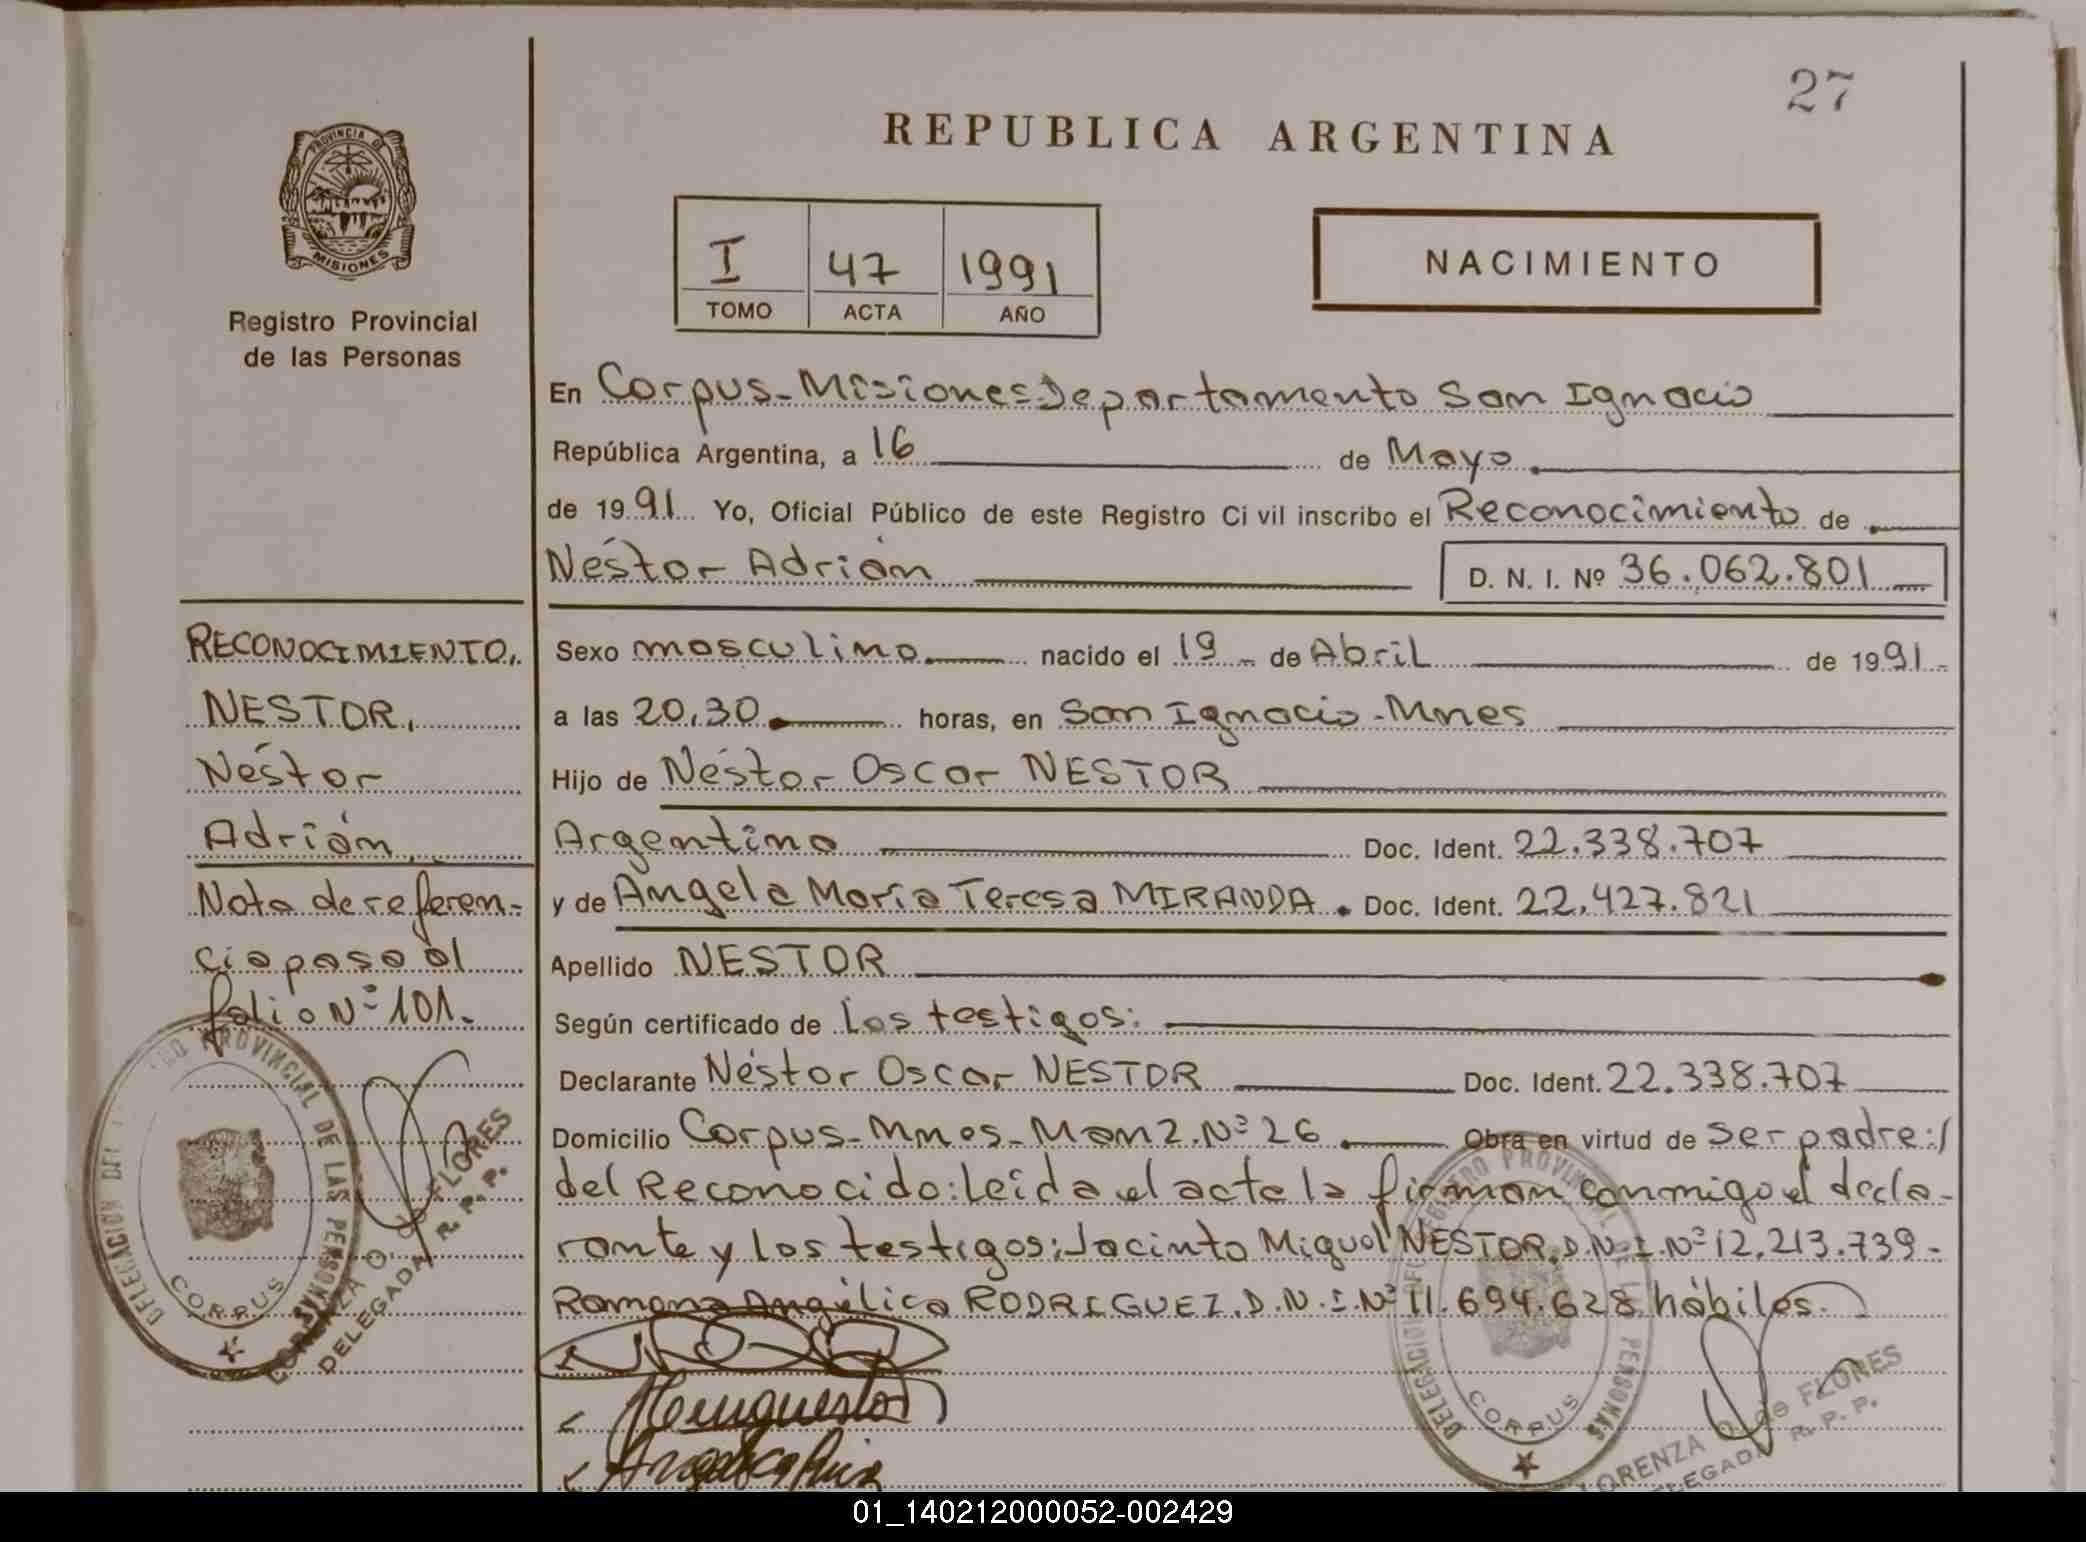 27
REPUBLICA ARGENTINA
PROVINCIA DE
MISIONES
Registro Provincial
de las Personas
I 47 1991
TOMO ACTA AÑO
NACIMIENTO
En Corpus-Misiones Departamento San Ignacio
República Argentina, a 16 de Mayo
de 1991 Yo, Oficial Público de este Registro Civil inscribo el Reconocimiento de
Néstor Adrián D. N. I. Nº 36.062.801
Sexo masculino nacido el 19 - de Abril de 1991-
a las 20,30 horas, en San Ignacio-Mnes
Hijo de Néstor Oscar NESTOR
Argentino Doc. Ident. 22.338.707
y de Angela María Teresa MIRANDA. Doc. Ident. 22.427.821
Apellido NESTOR
Según certificado de Los testigos:
Declarante Néstor Oscar NESTOR Doc. Ident. 22.338.707
Domicilio Corpus-Mnes-Manz.Nº 26 Obra en virtud de ser padre:/
del Reconocido:Leída el acta la firman conmigo el decla-
rante y los testigos:Jacinto Miguel NESTOR.D.N.I.Nº12.213.739-
Ramona Angélica RODRIGUEZ.D.N.I.Nº11.694.628 hábiles.
RECONOCIMIENTO,
NESTOR,
Néstor
Adrián
Nota de referen-
cia pasa al
folio Nº 101.
PROVINCIAL DE LAS PERSONAS
DELEGACION DEL
CORPUS
LORENZA O. de FLORES
DELEGADA R. P. P.
REGISTRO PROVINCIAL DE LAS PERSONAS
DELEGACION DEL
CORPUS
LORENZA O. de FLORES
DELEGADA R. P. P.
01_140212000052-002429